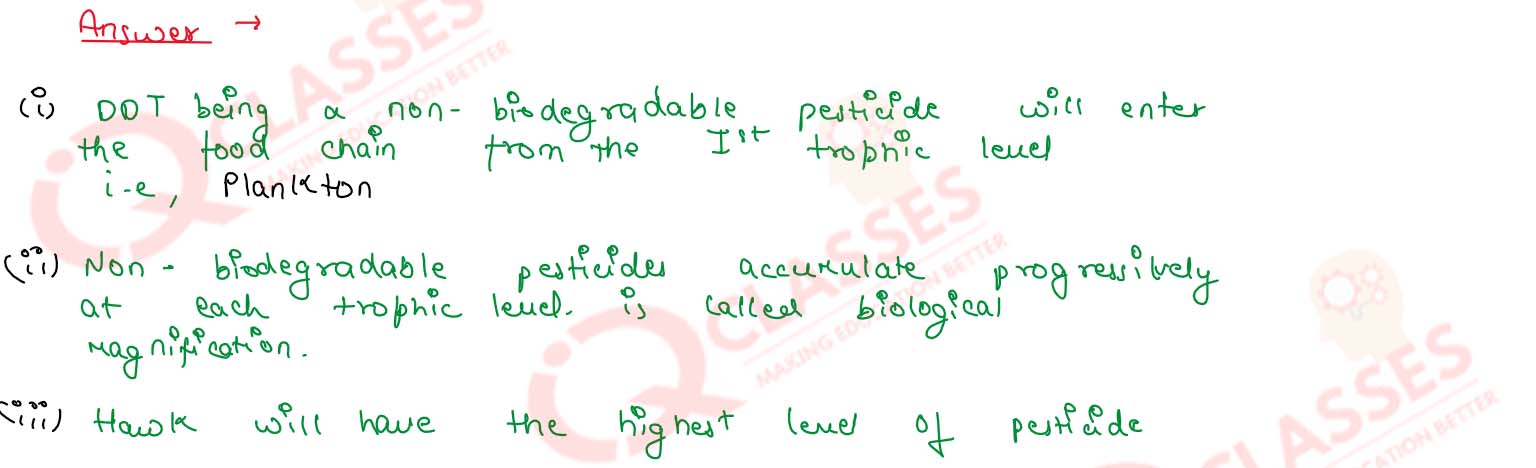 Answer →
(i) DDT being a non-biodegradable pesticide will enter
the food chain from the Ist trophic level
i-e, Plankton
(ii) Non-biodegradable pesticides accumulate progressively
at each trophic level. is called biological
magnification.
(iii) Hawk will have the highest level of pesticide
IQ CLASSES
MAKING EDUCATION BETTER
IQ CLASSES
MAKING EDUCATION BETTER
CLASSES
EDUCATION BETTER